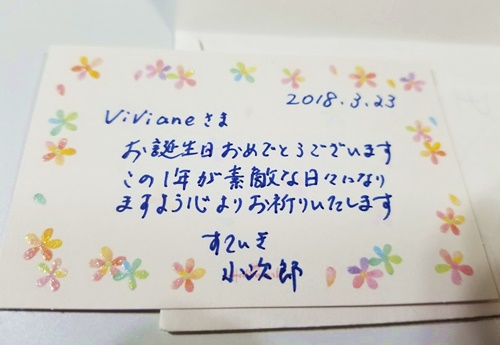 2018.3.23
Vivianeさま
お誕生日おめでとうございます
この1年が素敵な日々になり
ますよう心よりお祈りいたします
すていき
小次郎